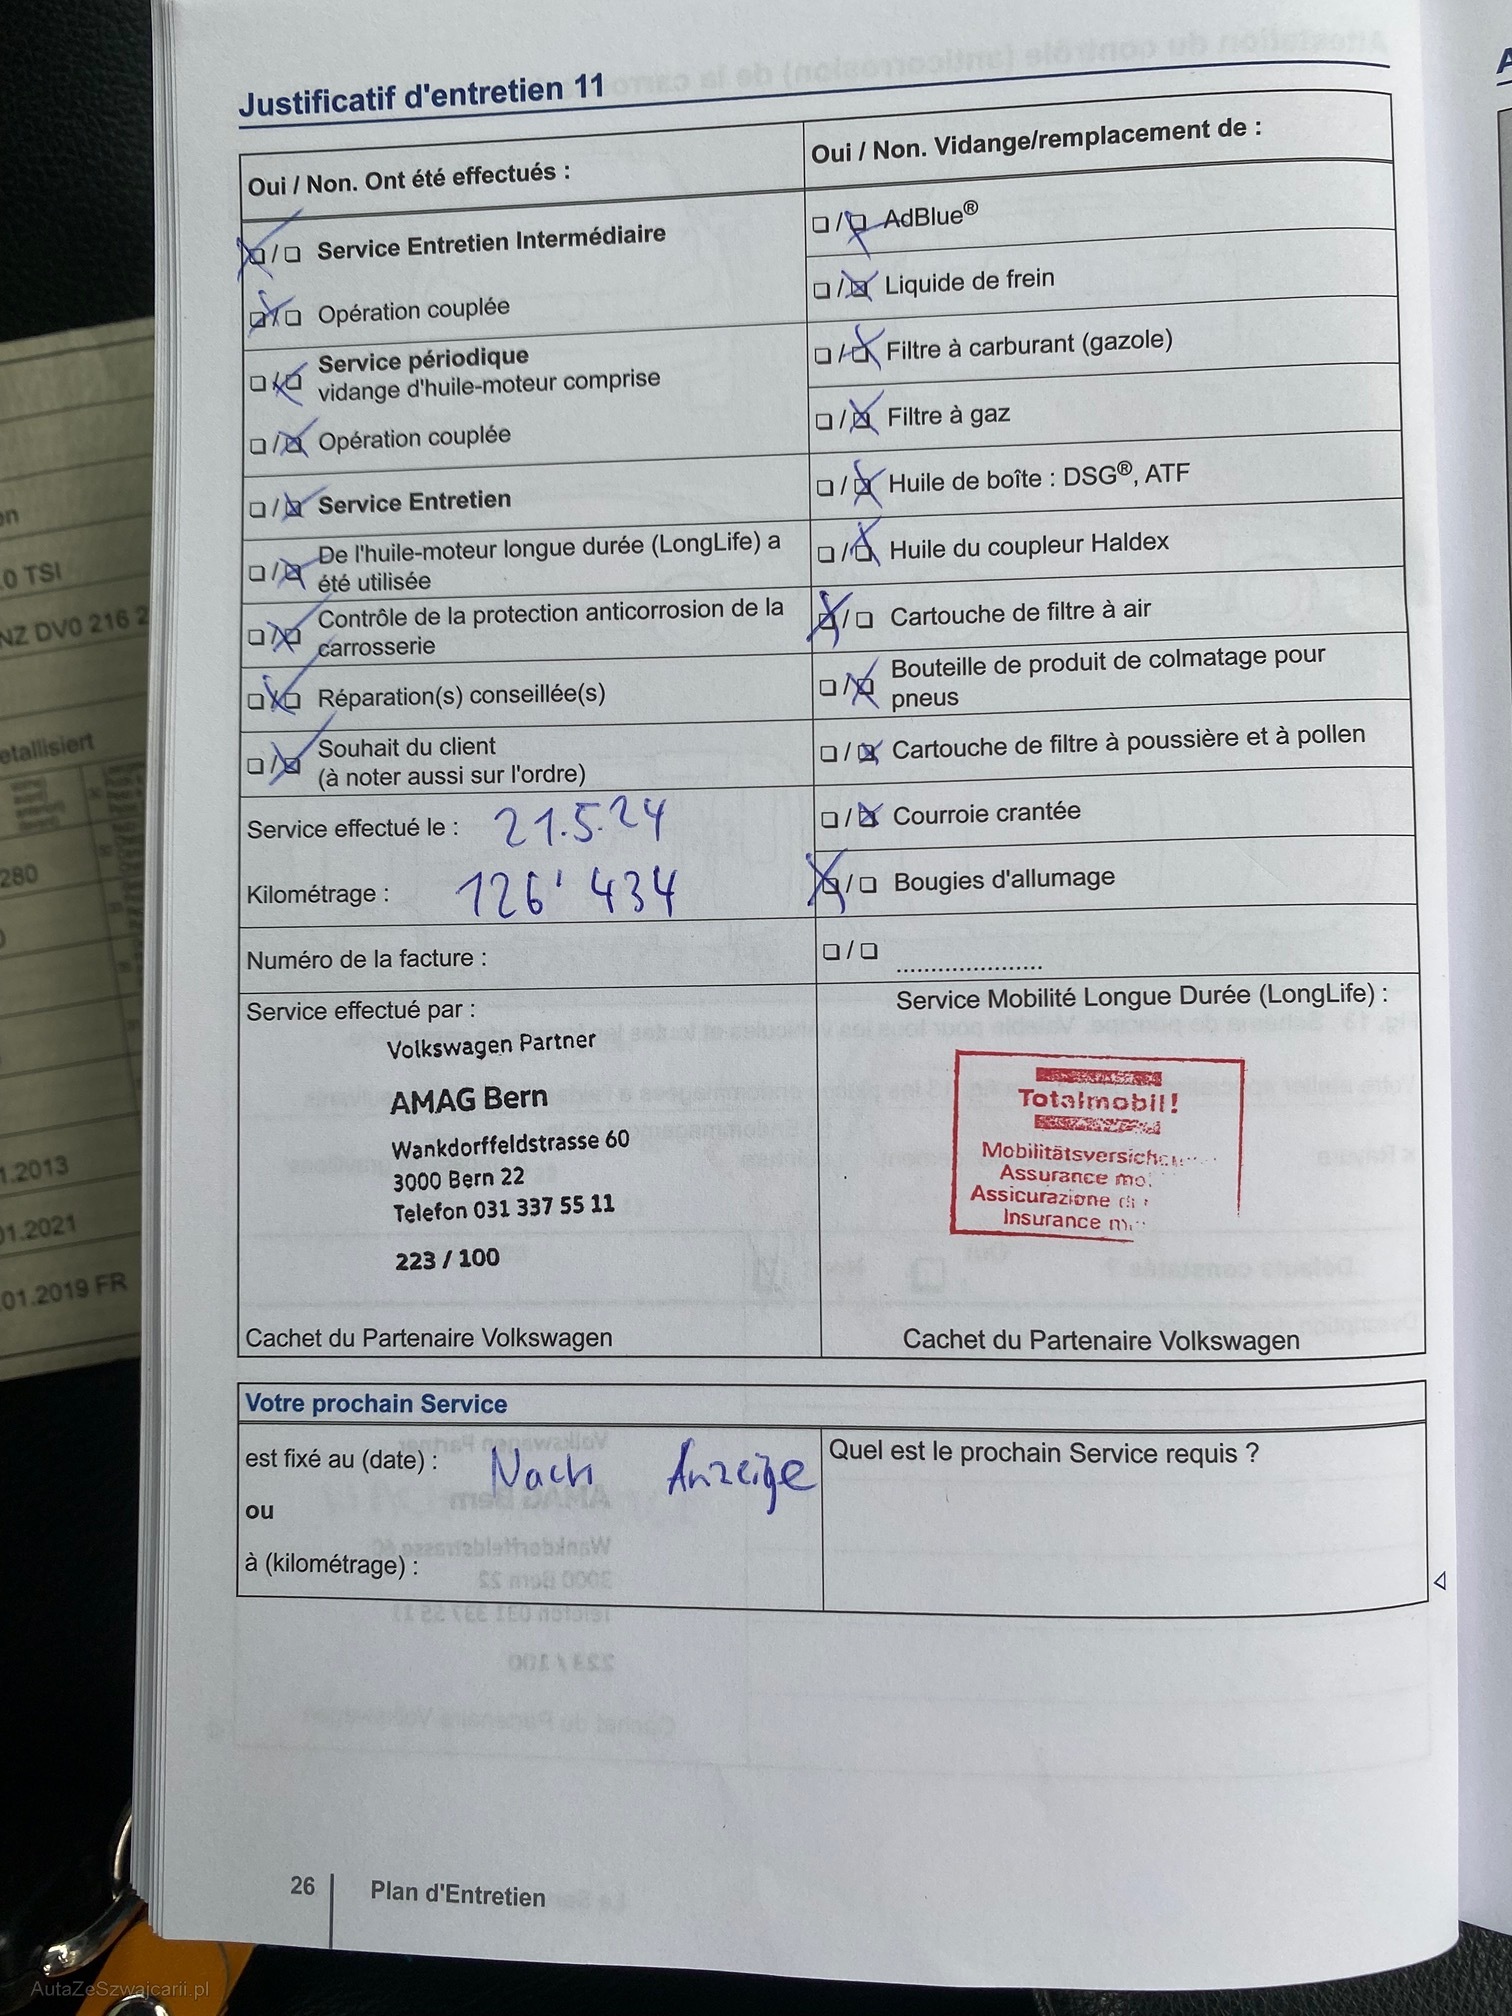 Justificatif d'entretien 11
Oui / Non. Ont été effectués :
☒ / ☐ Service Entretien Intermédiaire
☒ / ☐ Opération couplée
☐ / ☒ Service périodique
vidange d'huile-moteur comprise
☐ / ☒ Opération couplée
☐ / ☒ Service Entretien
☐ / ☒ De l'huile-moteur longue durée (LongLife) a
été utilisée
☐ / ☒ Contrôle de la protection anticorrosion de la
carrosserie
☐ / ☒ Réparation(s) conseillée(s)
☐ / ☒ Souhait du client
(à noter aussi sur l'ordre)
Service effectué le : 21.5.24
Kilométrage : 126' 434
Numéro de la facture :
Service effectué par :
Volkswagen Partner
AMAG Bern
Wankdorffeldstrasse 60
3000 Bern 22
Telefon 031 337 55 11
223 / 100
Cachet du Partenaire Volkswagen
Oui / Non. Vidange/remplacement de :
☐ / ☒ AdBlue®
☐ / ☒ Liquide de frein
☐ / ☒ Filtre à carburant (gazole)
☐ / ☒ Filtre à gaz
☐ / ☒ Huile de boîte : DSG®, ATF
☐ / ☒ Huile du coupleur Haldex
☒ / ☐ Cartouche de filtre à air
☐ / ☒ Bouteille de produit de colmatage pour
pneus
☐ / ☒ Cartouche de filtre à poussière et à pollen
☐ / ☒ Courroie crantée
☒ / ☐ Bougies d'allumage
☐ / ☐ .....................
Service Mobilité Longue Durée (LongLife) :
Totalmobil!
Assurance
Assicurazione
Insurance
Cachet du Partenaire Volkswagen
Votre prochain Service
est fixé au (date) : Nach Anzeige
ou
à (kilométrage) :
Quel est le prochain Service requis ?
26 Plan d'Entretien
0 TSI
NZ DV0 216 2
etallisiert
280
1.2013
01.2021
01.2019 FR
AutaZeSzwajcarii.pl